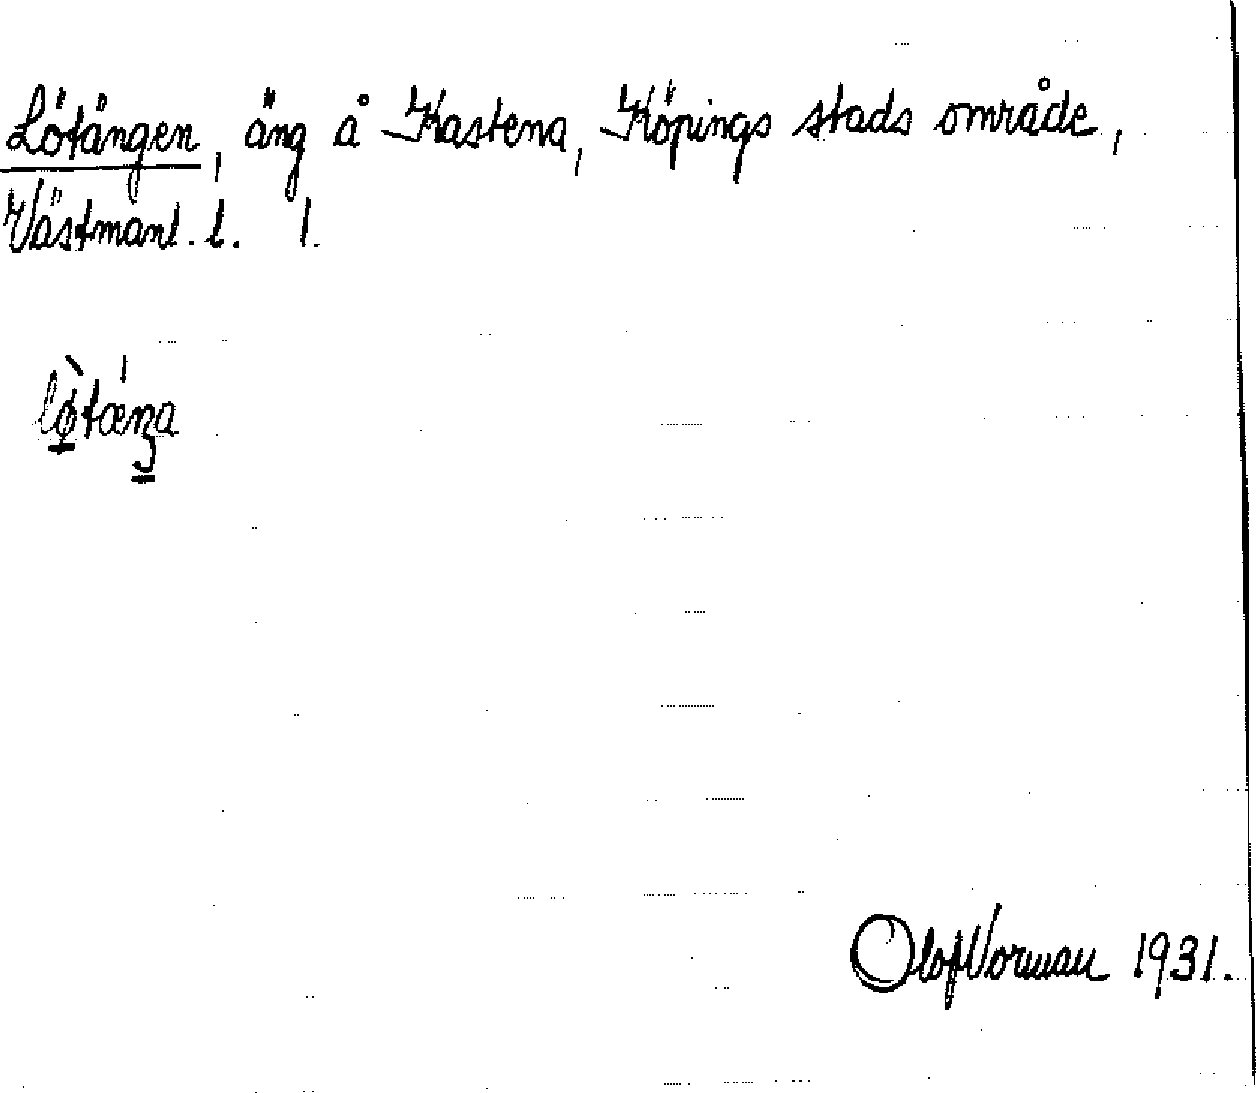 Lötängen, äng å Kastena, Köpings stads område,
Västmanl. l. 1.
lø̀tæŋa
Olof Norman 1931.